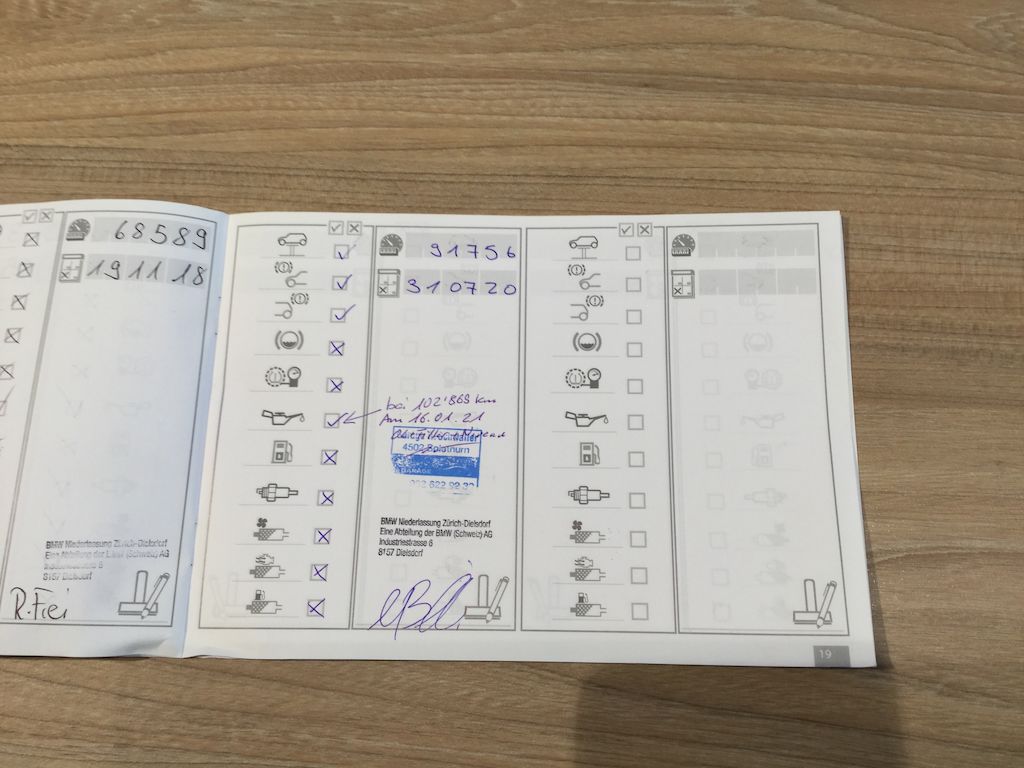 68589
191118
BMW Niederlassung Zürich-Dielsdorf
Industriestrasse 6
8157 Dielsdorf
R. Frei
91756
310720
bei 102'868 km
Am 16.01.21
4502 Solothurn
GARAGE
032 622 99 32
BMW Niederlassung Zürich-Dielsdorf
Eine Abteilung der BMW (Schweiz) AG
Industriestrasse 6
8157 Dielsdorf
19